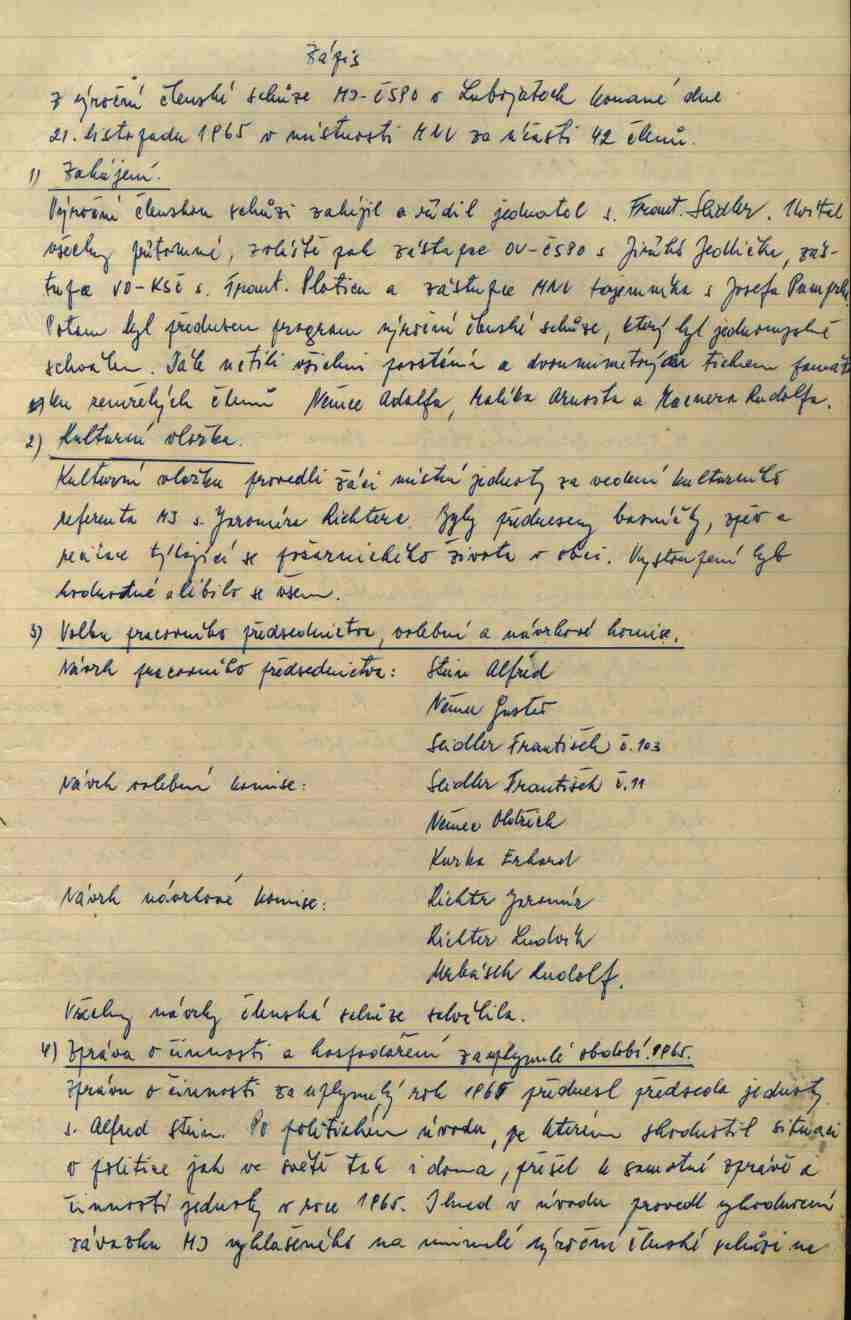 Zápis
z výroční členské schůze MJ-ČSPO v Lubojatech konané dne
21. listopadu 1965 v místnosti MNV za účasti 42 členů.
1) Zahájení.
Výroční členskou schůzi zahájil a řídil jednatel s. Frant. Seidler. Uvítal
všechny přítomné, zvláště pak zástupce OV-ČSPO s Jedličku, zás-
tupce VO-KSČ s. Frant. a zástupce MNV tajemníka s Josefa
Potom byl přednesen program výroční členské schůze, který byl jednomyslně
schválen. Dále uctili všichni povstáním a dvouminutovým tichem památ
ku zemřelých členů Němce Adolfa, Malíka Arnošta a Rudolfa.
2) Kulturní vložka.
Kulturní vložku provedli žáci místní jednoty za vedení kulturního
referenta MJ s. Jaromíra Richtera. Byly předneseny básničky, zpěv a
recitace týkající se požárnického života v obci. Vystoupení byli
hodnotné a líbilo se všem.
3) Volba pracovního předsednictva, volební a návrhové komise.
Návrh pracovního předsednictva: Stein Alfréd
Němec Gustav
Seidler František č. 103
Návrh volební komise: Seidler František č. 11
Němec Oldřich
Kurka Erhard
Návrh návrhové komise: Richtr Jaromír
Richter Ludvík
Rudolf.
Všechny návrhy členská schůze schválila.
4) Zpráva o činnosti a hospodaření za uplynulé období 1965.
Zprávu o činnosti za uplynulý rok 1965 přednesl předseda jednoty
s. Alfred Stein. Po politickém úvodu, ve kterém zhodnotil situaci
v politice jak ve světě tak i doma, přešel k samotné zprávě o
činnosti jednoty v roce 1965. Ihned v úvodu provedl vyhodnocení
závazku MJ vyhlášeného na minulé výroční členské schůzi na